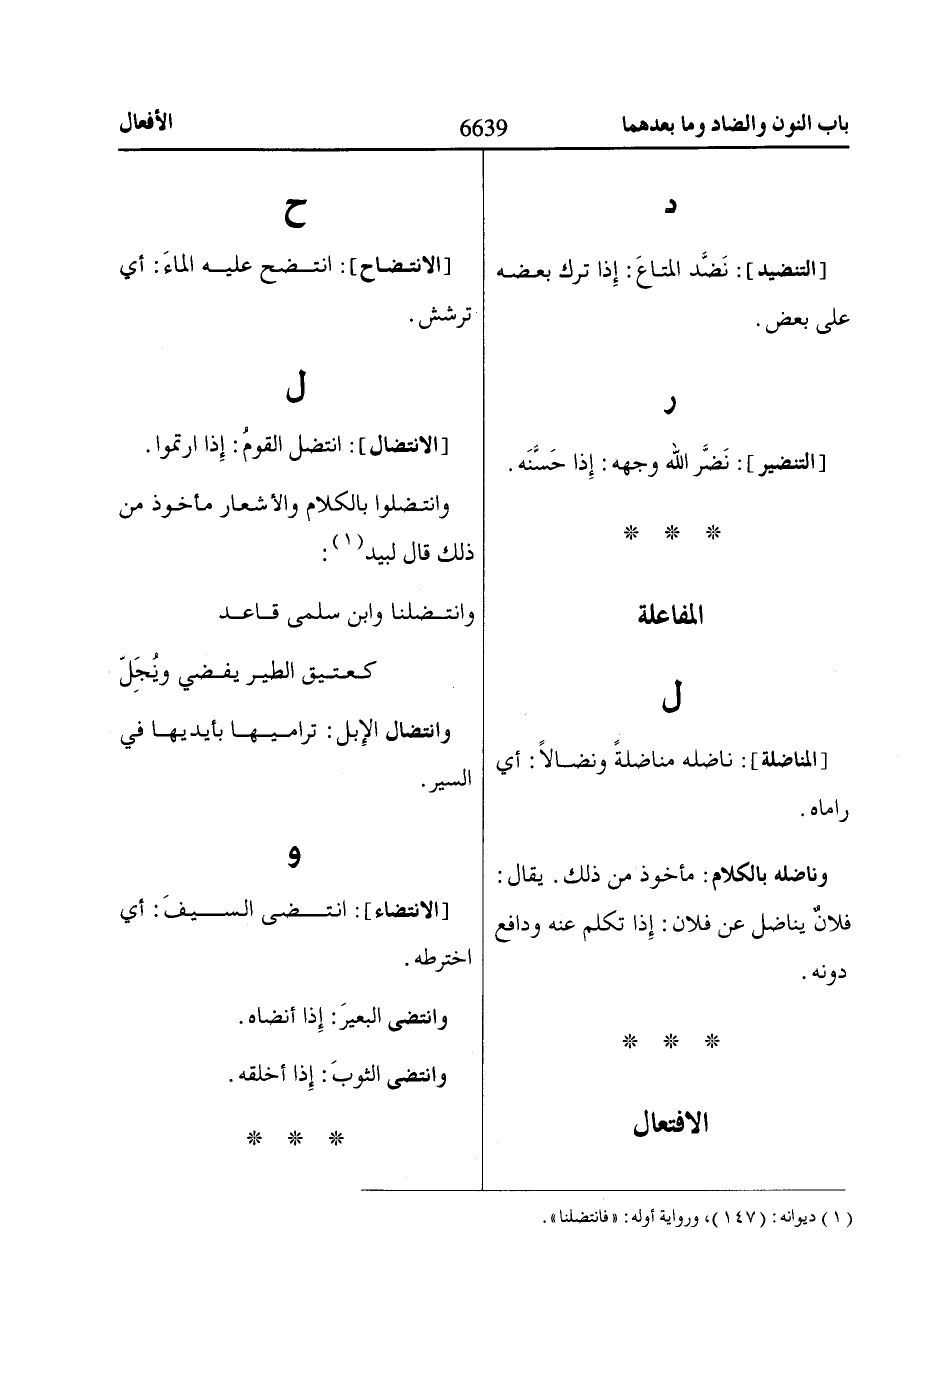 باب النون والضاد وما بعدهما
6639
الأفعال
د
[التنضيد]: نَضَّد المتاعَ: إِذا ترك بعضه
على بعض.
ر
[التنضير]: نَضَّر الله وجهه: إِذا حَسَّنَه.
* * *
المفاعلة
ل
[المناضلة]: ناضله مناضلةً ونضالاً: أي
راماه.
وناضله بالكلام: مأخوذ من ذلك. يقال:
فلانٌ يناضل عن فلان: إِذا تكلم عنه ودافع
دونه.
* * *
الافتعال
ح
[الانتضاح]: انتضح عليه الماءَ: أي
ترشش.
ل
[الانتضال]: انتضل القومُ: إِذا ارتموا.
وانتضلوا بالكلام والأشعار مأخوذ من
ذلك قال لبيد(١):
وانتضلنا وابن سلمى قاعد
كعتيق الطير يفضي ونُجَلّ
وانتضال الإِبل: تراميها بأيديها في
السير.
و
[الانتضاء]: انتضى السيفَ: أي
اخترطه.
وانتضى البعيرَ: إِذا أنضاه.
وانتضى الثوبَ: إِذا أخلقه.
* * *
(١) ديوانه: (١٤٧)، ورواية أوله: «فانتضلنا».